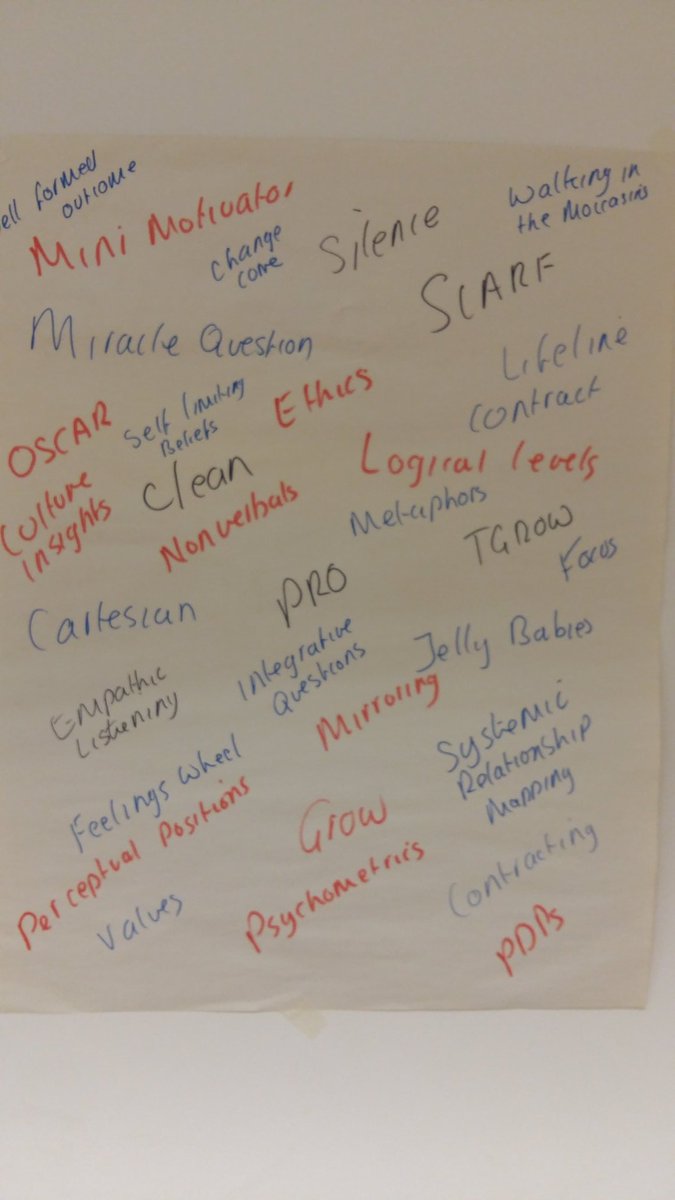 ell formed
outcome
Mini Motivator
Change
Silence
Walking in
the Moccasins
SCARF
Miracle Question
Lifeline
OSCAR
Self limiting
Beliefs
Ethics
Contract
Culture
insights
Clean
Logical levels
Nonverbals
Metaphors
TGROW
Focus
Cartesian
PRO
Integrative
Questions
Jelly Babies
Empathic
Listening
Mirroring
Systemic
Relationship
Mapping
Feelings wheel
Perceptual Positions
Grow
Values
Psychometrics
Contracting
PDPs